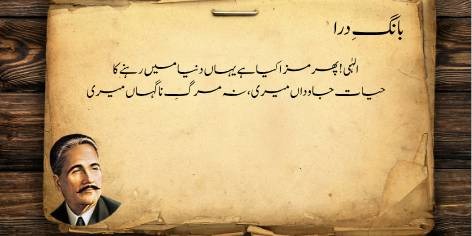 بانگِ درا
الٰہی! پھر مزا کیا ہے یہاں دنیا میں رہنے کا
حیات جاوداں میری، نہ مرگِ ناگہاں میری